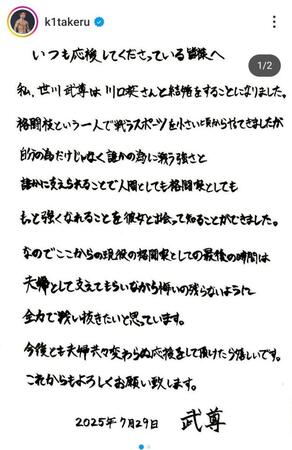 k1takeru
1/2
いつも応援してくださっている皆様へ
私、世川武尊は川口葵さんと結婚をすることになりました。
格闘技という一人で戦うスポーツを小さい頃から続けてきましたが
自分の為だけじゃなく誰かの為に戦う強さと
誰かに支えられることで人間としても格闘家としても
もっと強くなれることを彼女と出会って知ることができました。
なのでここからの現役の格闘家としての最後の時間は
夫婦として支えてもらいながら悔いの残らないように
全力で戦い抜きたいと思っています。
今後とも夫婦共々変わらぬ応援をして頂けたら嬉しいです。
これからもよろしくお願い致します。
2025年7月29日 武尊